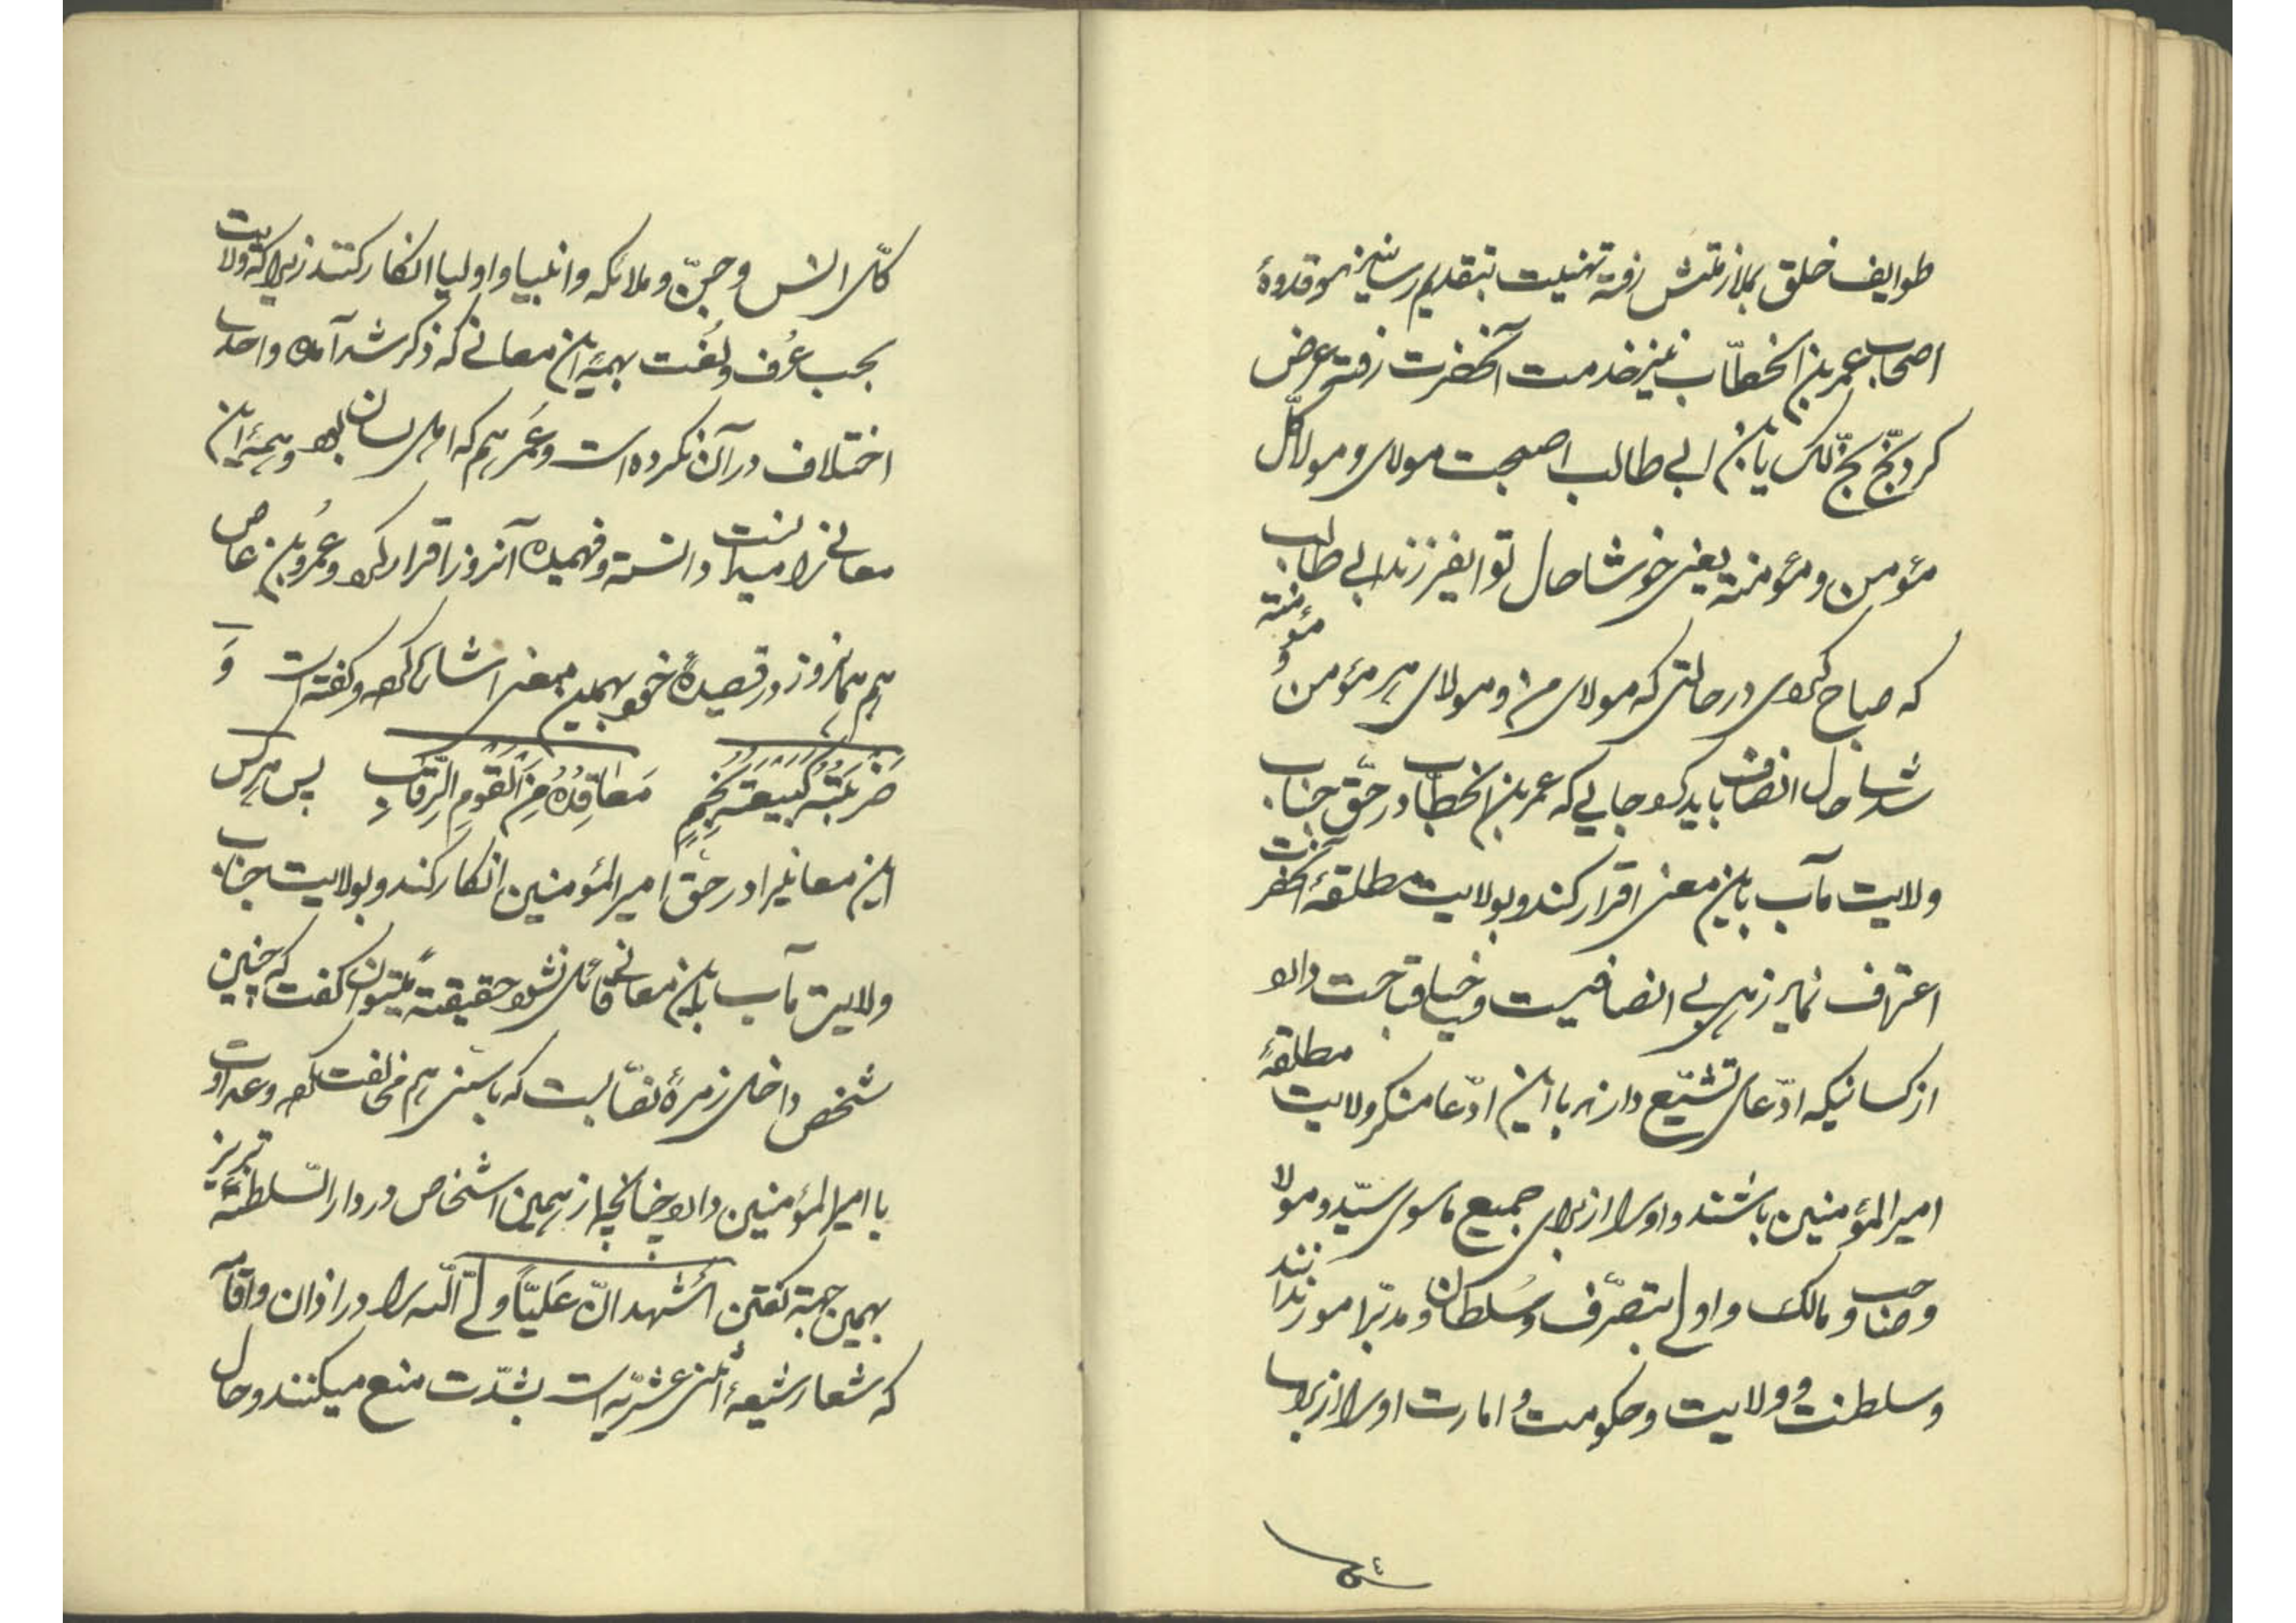 طوایف خلق بملازمتش رفته تهنیت بتقدیم رسانیدند و قدوهٔ
اصحاب عمر بن الخطّاب نیز خدمت آنحضرت رفته عرض
کرد بخّ بخّ لک یابن ابی طالب اصبحت مولای و مولا کلّ
مؤمن و مؤمنة یعنی خوشا حال تو ایفرزند ابی طالب
که صباح کردی در حالتی که مولای من و مولای هر مؤمن و مؤمنة
شدی حال انصاف باید کرد جایی که عمر بن الخطّاب در حقّ جناب
ولایت مآب باین معنی اقرار کند و بولایت مطلقهٔ آنحضرت
اعتراف نماید زهی بی انصافیست و خیلی قباحت دارد
از کسانیکه ادّعای تشیّع دارند با این ادّعا منکر ولایت مطلقهٔ
امیرالمؤمنین باشند و او را از برای جمیع ماسوی سیّد و مولا
و صاحب و مالک و اولی بتصرّف و سلطان و مدبّر امور ندانند
و سلطنت و ولایت و حکومت و امارت او را از برای
کلّ انس و جنّ و ملائکه و انبیا و اولیا انکار کنند زیرا که ولایت
بحسب عُرف و لُغت بهمهٔ این معانی که ذکر شد آمده و احدی
اختلاف در آن نکرده است و عُمَر هم که اهل لسان بود و همهٔ این
معانی را میدانست دانسته و فهمیده آنروز اقرار کرد و عُمرو بن عاص
هم همانروز در قصیدهٔ خود بهمین معنی اشاره کرده و گفته است وَ
ضَربَتُه کَبیعَتِه بِخُمٍّ مَعاقِدُهُ مِنَ القَومِ الرِّقابِ پس هر کس
این معانیرا در حقّ امیرالمؤمنین انکار کند و بولایت جناب
ولایت مآب باین معانی قائل نشود حقیقتهً میتوان گفت که چنین
شخص داخل زمرهٔ نصّابست که با سنّی هم مخالفت کرده و عداوت
با امیرالمؤمنین دارد چنانچه از همین اشخاص در دارالسّلطنهٔ تبریز
بهمین جهة گفتن اَشهد انّ عَلیّاً ولیّ اللّه را در اذان و اقامه
که شعار شیعهٔ اثنی عشریّه است بشدّت منع میکنند و حال